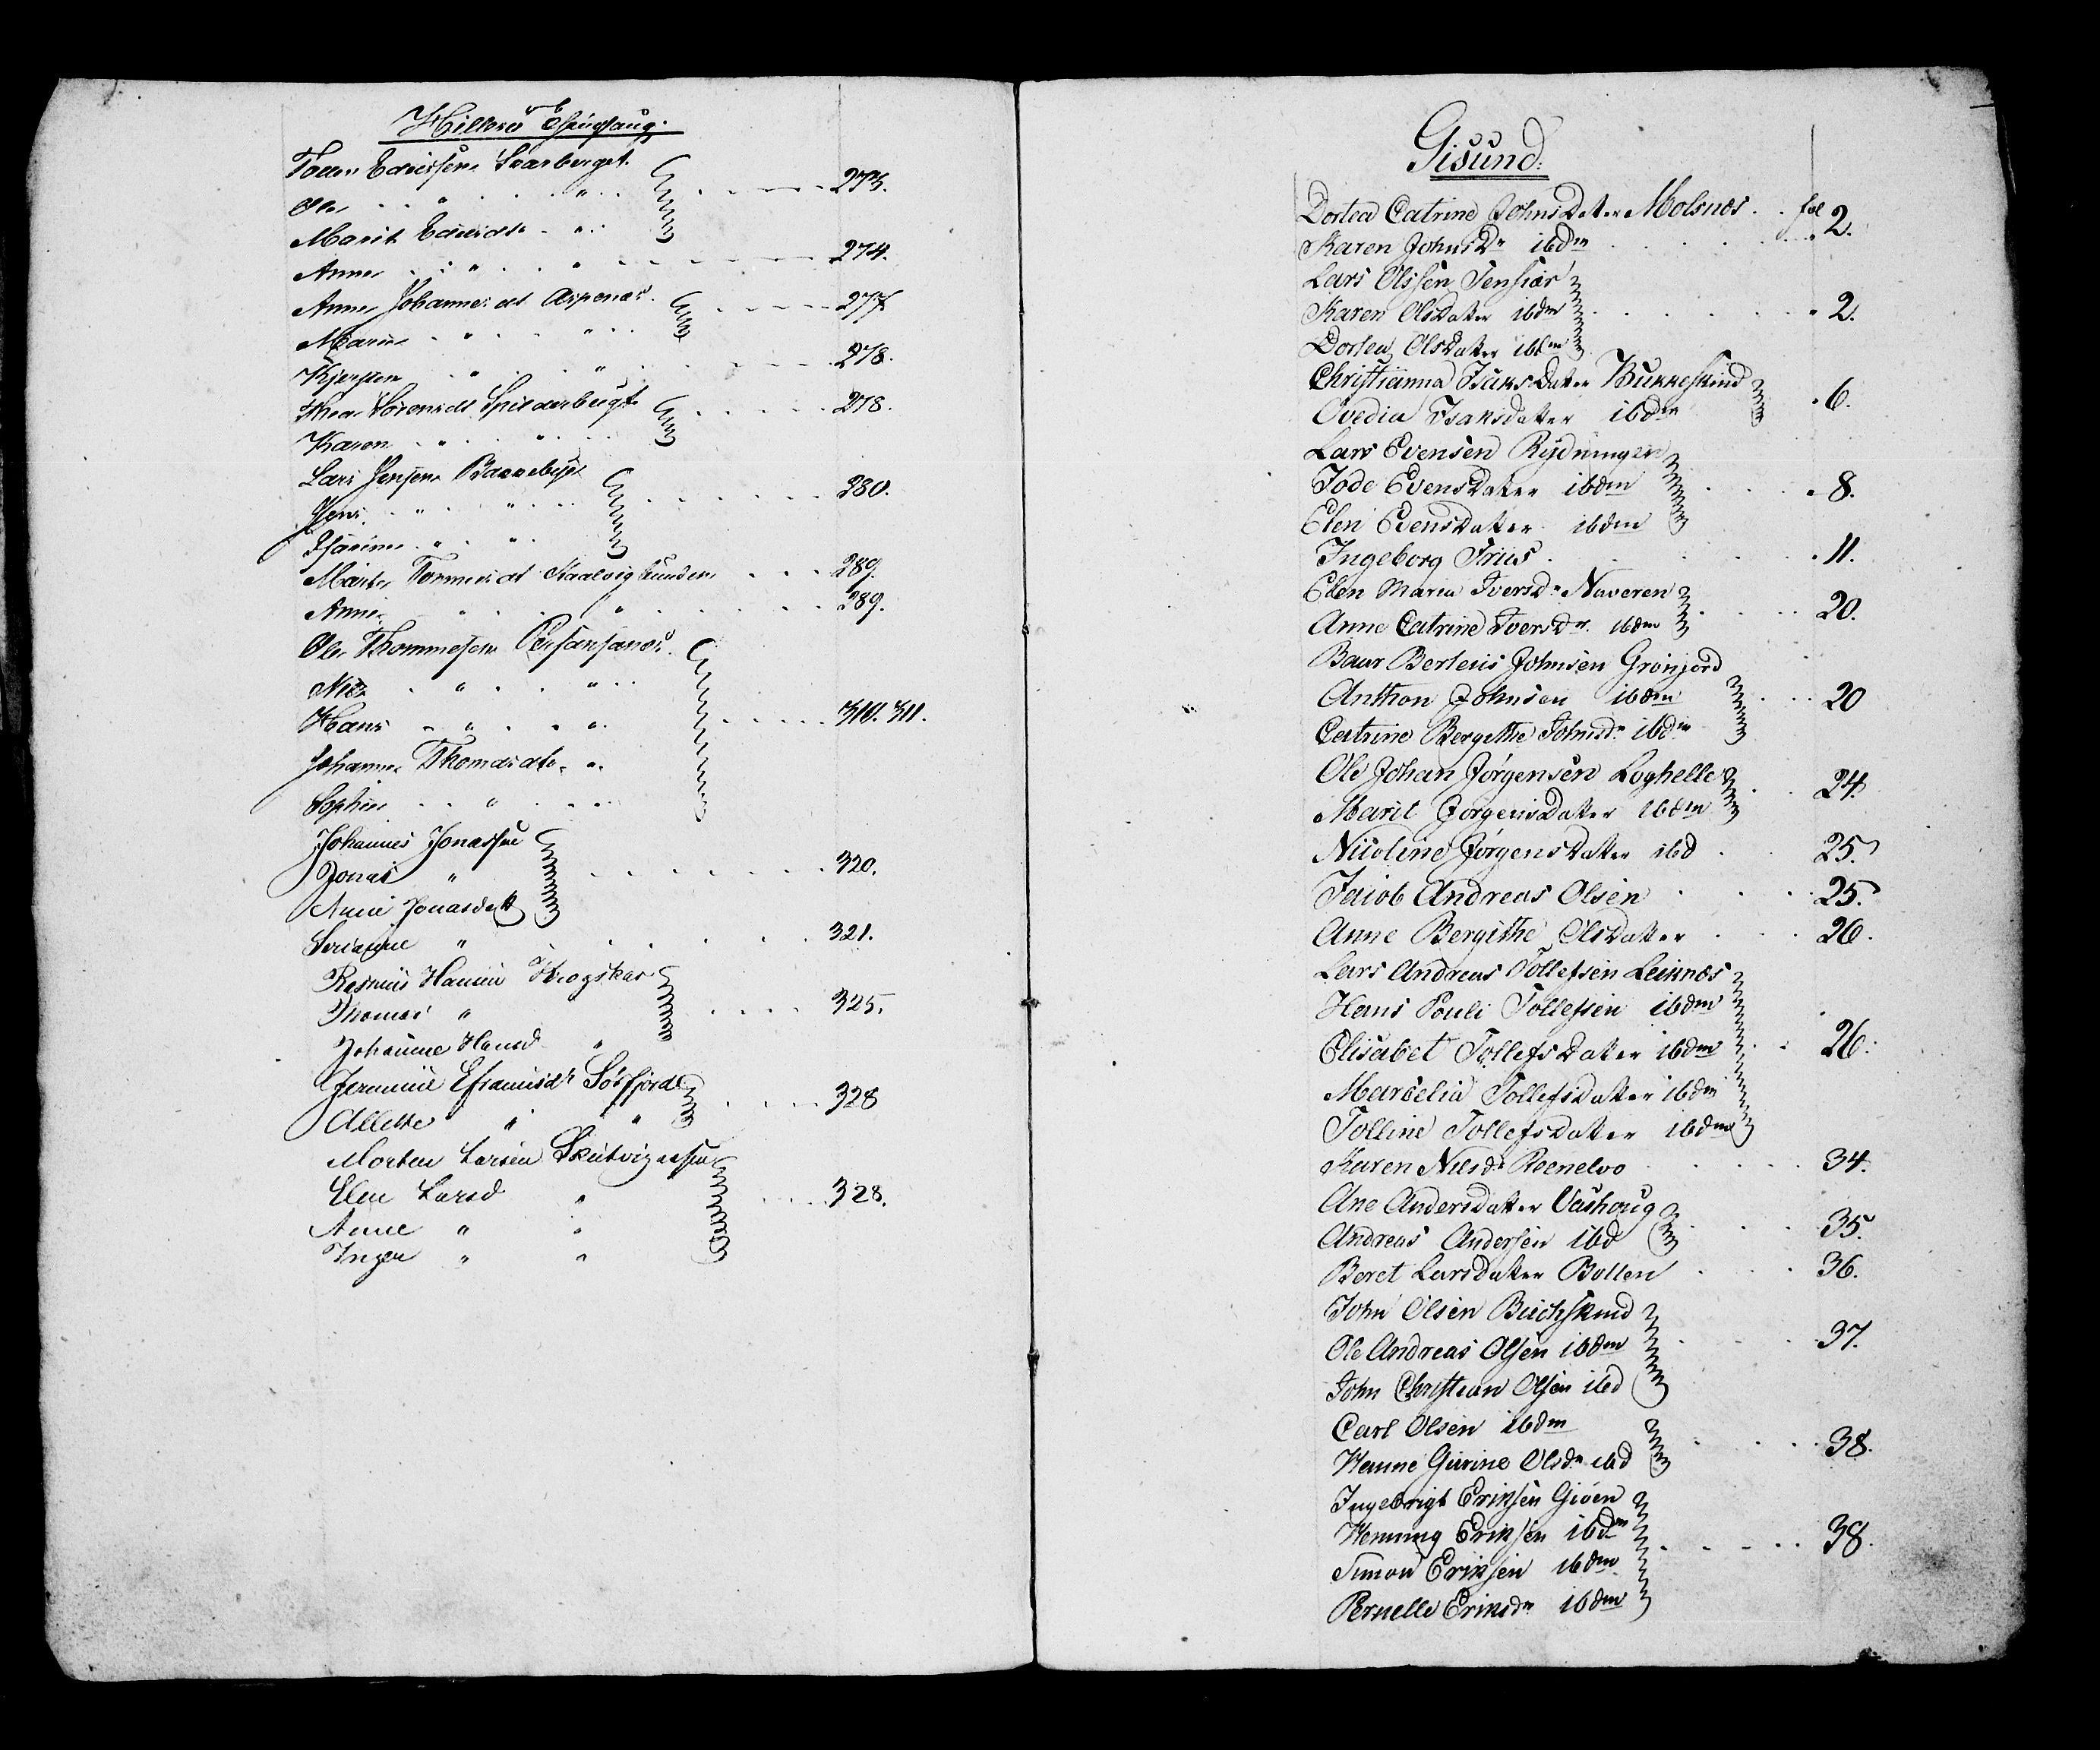 Hillesø Thinglaug.
Edvardsen Svarberget.
Ole " " 273.
Marit Edvardsdr "
Anne " " 274.
Anne Johannesdt Aspenæs. 277
Maria " "
Kjersten " " 278.
Thea Sørensdt Spilderbugt 278.
Karen " "
Lars Jensen Bakkebye
Jens " " 280.
" "
Marte 289.
Anne " " 289.
Ole Thommesen
Nils " "
Hans " " 310. 311.
Johanna Thomasdt "
Sophie "
Johannes Jonassen
Jonas " 320.
Anne Jonasdatt
" 321.
Rasmus Hansen Krogskar
Thomas " 325.
Johanne Hansd "
Efraimsdr Sørfjord
Allette " " 328
Morten Larsen
Elen Larsd " 328.
Anne " "
Inger " "
Gisund.
Dortea Catrine JohnsDatter Molsnæs . . fol 2.
Karen JohnsDr ibdm
Lars Olssen Jensiær
Karen OlsDatter ibdm " 2.
Dortea OlsDatter ibdm
Christianna IsaksDatter Bukkeskind " 6.
Ovedia Isaksdatter ibdm
Lars Evensen Rydninger
Tode EvensDatter ibdm " 8.
Elen EvensDatter ibdm
Ingeborg Friis " 11.
Elen Maria Iversdr Naveren 20.
Anne Catrine IversDr ibdm
Baur Berteus Johnsen Grønjord
Anthon Johnsen ibdm 20
Catrine Bergithe Johnsdr ibdm
Ole Johan Jørgensen Løghelle 24.
Marit JørgensDatter ibdm
Nicoline JørgensDatter ibd 25.
Jacob Andreas Olsen 25.
Anne Bergithe OlsDatter 26.
Lars Andreas Tollefsen Leiknæs
Hans Pouli Tollefsen ibdm
Elisabet TollefsDatter ibdm 26.
Marselia TollefsDatter ibdm
Tolline TollefsDatter ibdm
Karen Nilsdr Reenelvo 34.
Ane Andersdatter Vashoug 35.
Andreas Andersen ibd
Beret LarsDatter Botten 36.
John Olsen Buchskind
Ole Andreas Olsen ibdm 37.
John Christian Olsen ibd
Carl Olsen ibdm 38.
Hanne Gurine Olsdr ibd
Ingebrigt Eriksen Gioen
Henning Eriksen ibdm 38.
Simon Eriksen ibdm
Pernelle Eriksdr ibdm